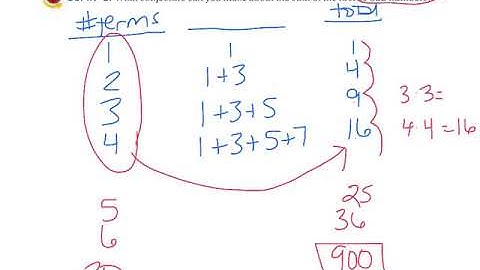 #terms total
1 1 1
2 1+3 4
3 1+3+5 9 3·3=
4 1+3+5+7 16 4·4=16
5 25
6 36
900